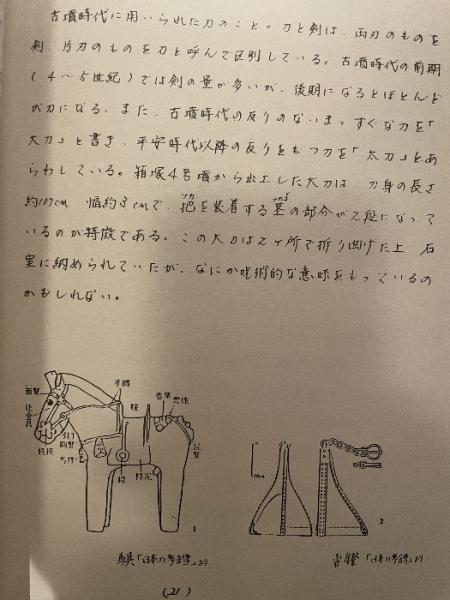 古墳時代に用いられた刀のこと。刀と剣は、両刃のものを
剣、片刃のものを刀と呼んで区別している。古墳時代の前期
(4〜5世紀)では剣の量が多いが、後期になるとほとんど
が刀になる。また、古墳時代の反りのないまっすぐな刀を「
大刀」と書き、平安時代以降の反りをもつ刀を「太刀」とあ
らわしている。箱塚4号墳から出土した大刀は、刀身の長さ
約107cm 幅約3cmで、把を装着する茎の部分が2段になって
いるのが特徴である。この大刀は2ヶ所で折り曲げた上 石
室に納められていたが、なにか呪術的な意味をもっているの
かもしれない。
手綱
鞍
杏葉
雲珠
面繋
鏡板
引手
胸繋
鐙
障泥
尻繋
1
2
馬具「日本の考古学」より
壺鐙「日本の考古学」より
(21)